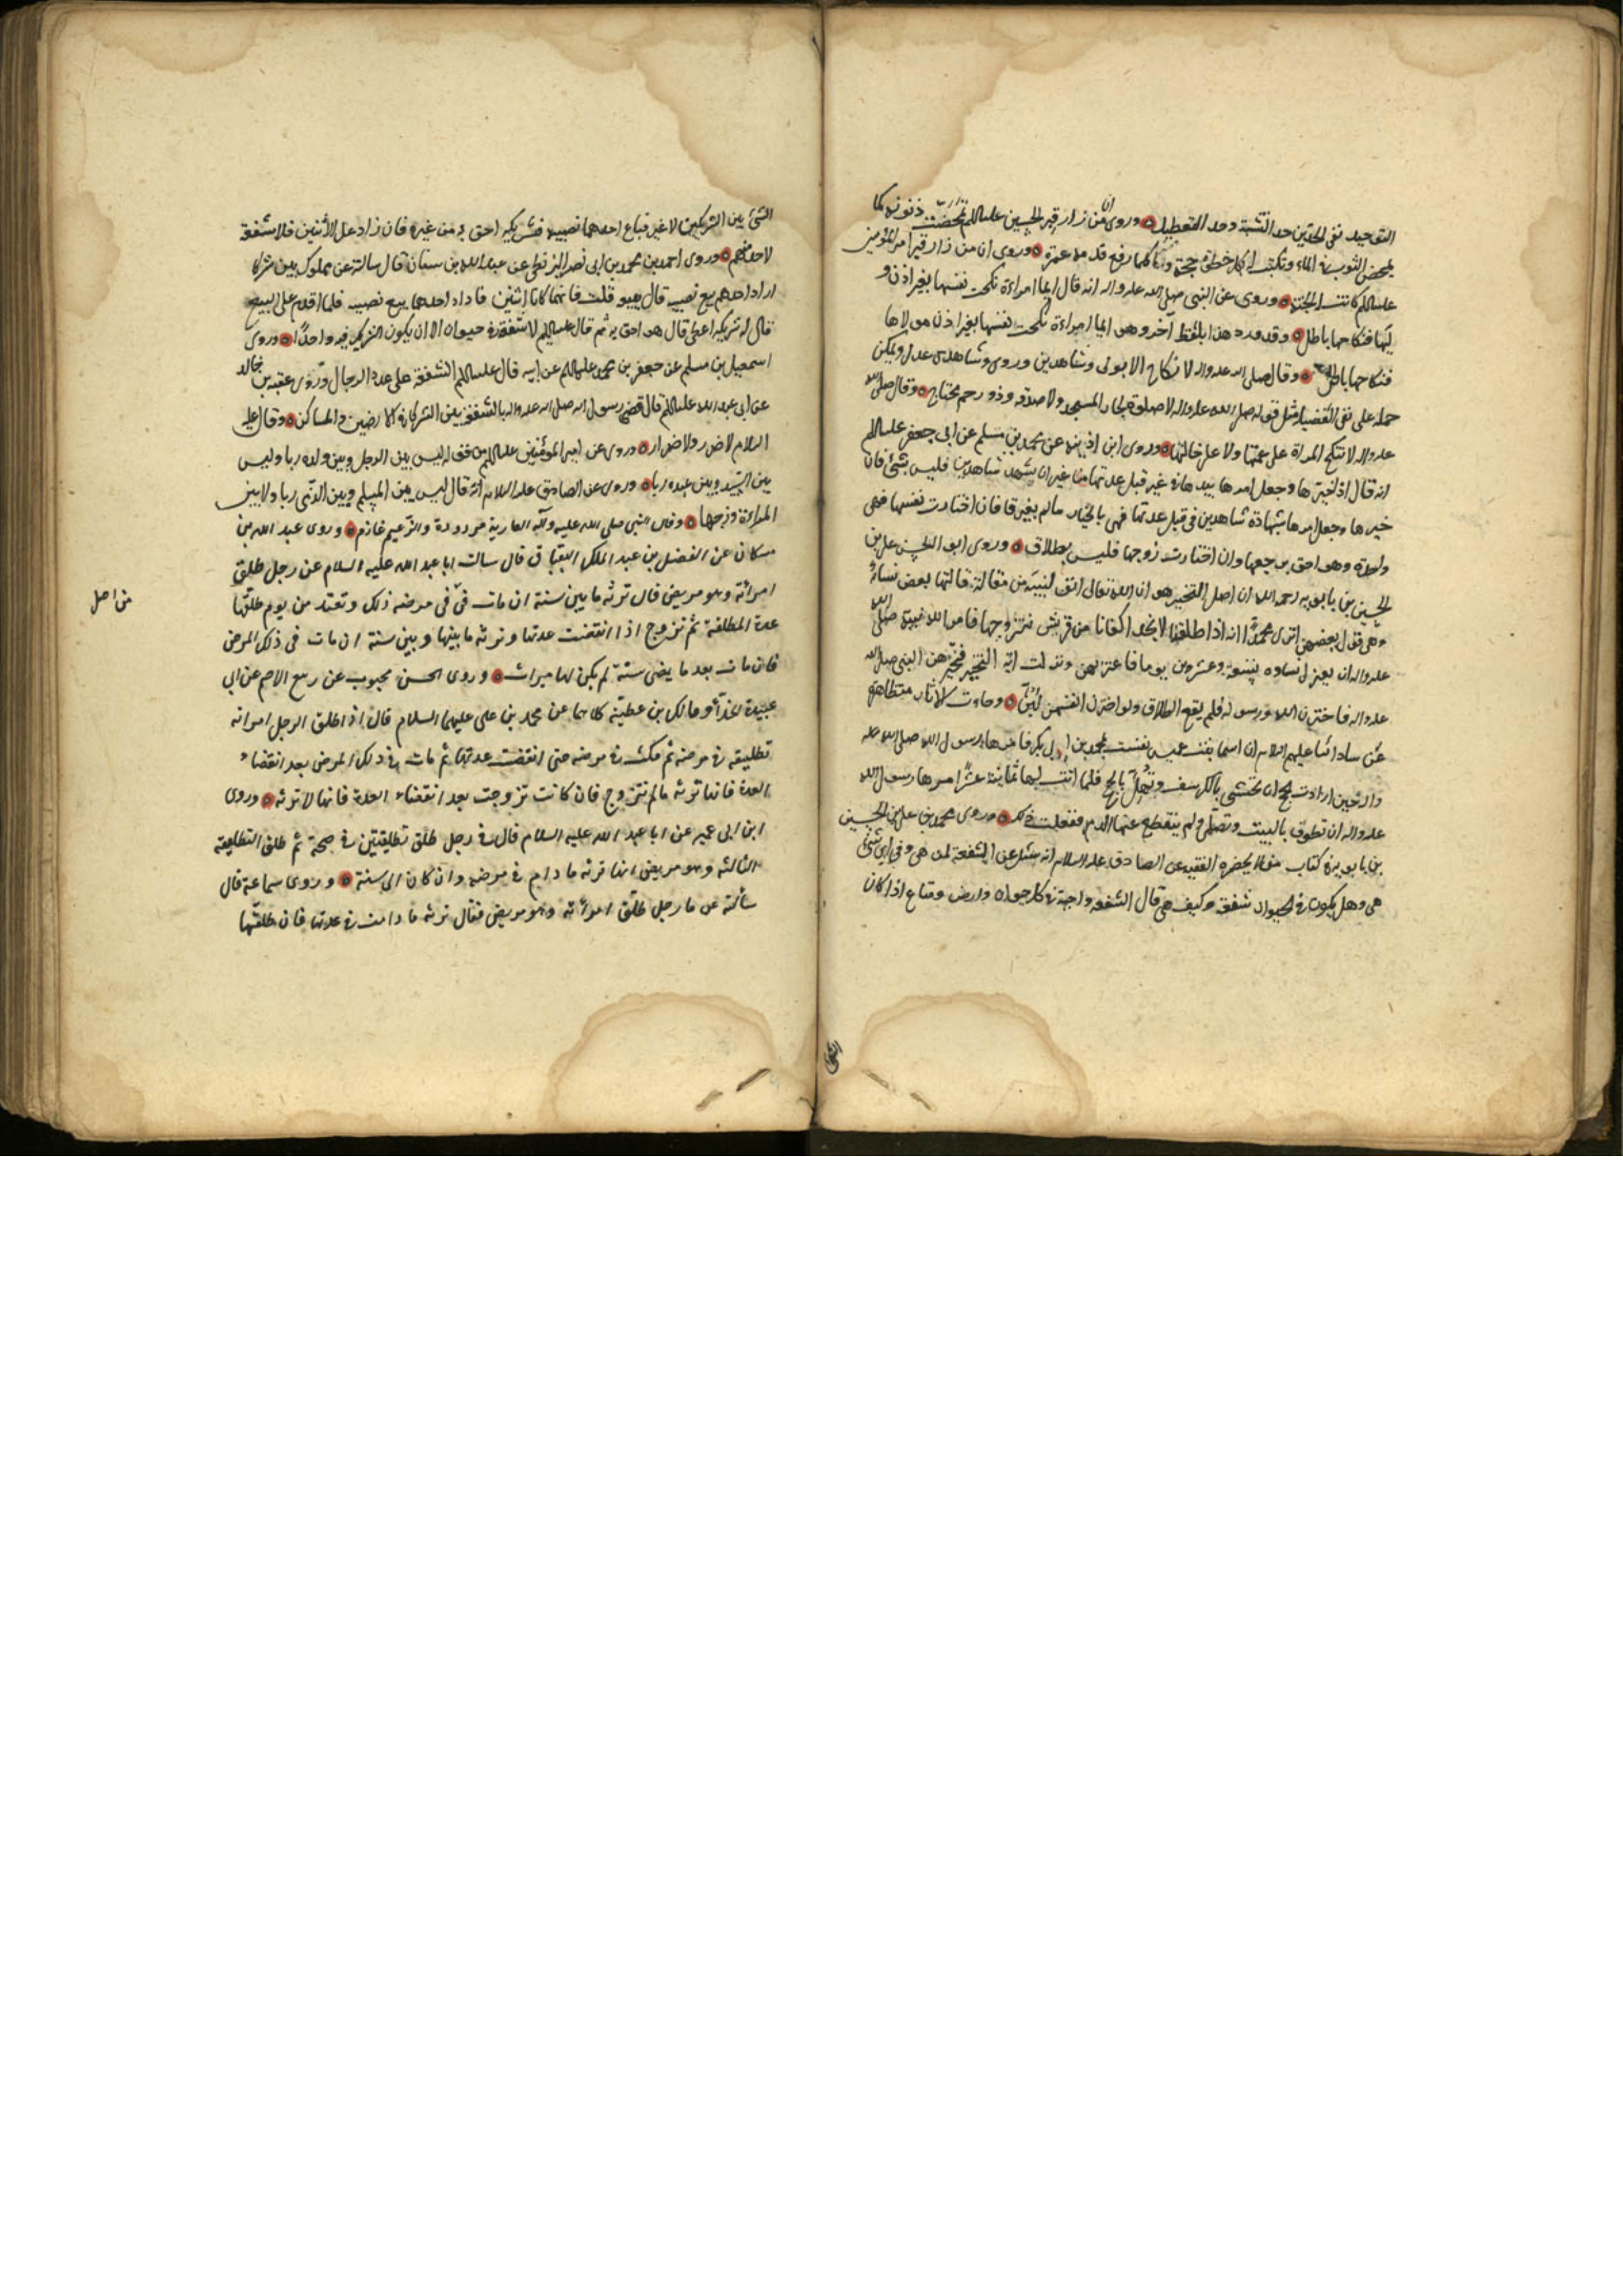 التوحيد نفى الحدين حد التشبه وحد التعطيل وروى ان من زار قبر الحسين عليه السلم تمحضت ذنوبه كما
يمحض الثوب فى الماء وتكتب له بكل خطوة حجة وكلما رفع قدمه عمرة وروى ان من زار قبر امير المؤمنين
عليه السلم كانت له الجنة وروى عن النبى صلى الله عليه واله انه قال ايما امراءة نكحت نفسها بغير اذن و
ليها فنكاحها باطل وقد ورد هذا بلفظ آخر وهو ايما امراءة نكحت نفسها بغير اذن مولاها
فنكاحها باطل وقال صلى الله عليه واله لا نكاح الا بولى وشاهدين وروى وشاهدى عدل ويمكن
حمله على نفى الفضيلة مثل قوله صلى الله عليه واله لا صلوة لجار المسجد ولا صدقه وذو رحم محتاج وقال صلى الله
عليه واله لا تنكح المراة على عمتها ولا على خالتها وروى ابن اذينه عن محمد بن مسلم عن ابى جعفر عليه السلم
انه قال اذا خيرها وجعل امرها بيدها فى غير قبل عدتها من غير ان يشهد شاهدين فليس بشئ فان
خيرها وجعل امرها بشهادة شاهدين فى قبل عدتها فهى بالخيار ما لم يفترقا فان اختارت نفسها فهى
واحدة وهو احق برجعها وان اختارت زوجها فليس بطلاق وروى ابو الحسن على بن
الحسين بن بابويه رحمه الله ان اصل التخيير هو ان الله تعالى انف لنبيه من مقالة قالتها بعض نسائه
وهى قول بعضهن اترى محمدا انه اذا طلقنا لا نجد اكفانا من قريش فتزوجها فامر الله نبيه صلى الله
عليه واله ان يعتزل نساءه تسعة وعشرين يوما فاعتزلهن ونزلت اية التخيير فخيرهن النبى صلى الله
عليه واله فاخترن الله ورسوله فلم يقع الطلاق ولو اخترن انفسهن لبن وجاءت الاثار متظاهرة
عن ساداتنا عليهم السلام ان اسما بنت عميس نفست بمحمد بن ابى بكر فامرها رسول الله صلى الله عليه
واله حين ارادت الحج ان تحتشى بالكرسف وتهل بالحج فلما اتت لها ثمانية عشر امرها رسول الله
عليه واله ان تطوف بالبيت وتصلى ولم ينقطع عنها الدم ففعلت ذلك وروى محمد بن على بن الحسين
بن بابويه فى كتاب من لا يحضره الفقيه عن الصادق عليه السلام انه سئل عن الشفعة لمن هى وفى اى شئ
هى وهل يكون فى الحيوان شفعة وكيف هى قال الشفعة واجبة فى كل حيوان وارض ومتاع اذا كان
الشئ
الشئ بين الشريكين لا غير فباع احدهما نصيبه فشريكه احق به من غيره فان زاد على الأثنين فلا شفعة
لاحد منهم وروى احمد بن محمد بن ابى نصر البزنطى عن عبد الله بن سنان قال سالته عن مملوك بين شركا
اراد احدهم بيع نصيبه قال يبيعه قلت فانهما كانا اثنين فاراد احدهما بيع نصيبه فلما اقدم على البيع
قال له شريكه اعطنى قال هو احق به ثم قال عليه السلم لا شفعة فى حيوان الا ان يكون الشريك فيه واحدا وروى
اسمعيل بن مسلم عن جعفر بن محمد عليهما السلم عن ابيه قال عليه السلم الشفعة على عدد الرجال وروى عقبه بن خالد
عن ابى عبد الله عليه السلم قال قضى رسول الله صلى الله عليه واله بالشفعة بين الشركاء فى الارضين والمساكن وقال عليه
السلام لا ضرر ولا ضرار وروى عن امير المؤمنين عليه السلم ليس بين الرجل وبين ولده ربا وليس
بين السيد وبين عبده ربا وروى عن الصادق عليه السلام انه قال ليس بين المسلم وبين الذمى ربا ولا بين
المراءة وزوجها وقال النبى صلى الله عليه وآله العارية مردودة والزعيم غارم وروى عبد الله بن
مسكان عن الفضل بن عبد الملك البقباق قال سالت ابا عبد الله عليه السلام عن رجل طلق
امراته وهو مريض قال ترثه ما بين سنة ان مات فى مرضه ذلك وتعتد من يوم طلقها
عدة المطلقة ثم تزوج اذا انقضت عدتها وترثه ما بينها وبين سنة ان مات فى ذلك المرض
فان مات بعد ما يمضى سنة لم يكن لها ميراث وروى الحسن محبوب عن ربيع الاصم عن ابى
عبيدة الحذاء ومالك بن عطية كلاهما عن محمد بن على عليهما السلام قال اذا طلق الرجل امراته
تطليقه فى مرضه ثم مكث فى مرضه حتى انقضت عدتها ثم مات فى ذلك المرض بعد انقضاء
العدة فانها ترثه ما لم تتزوج فان كانت تزوجت بعد انقضاء العدة فانها لا ترثه وروى
ابن ابى عمير عن ابا عبد الله عليه السلام قال فى رجل طلق تطليقتين فى صحة ثم طلق التطليقة
الثالثه وهو مريض انها ترثه ما دام فى مرضه وان كان الى سنة وروى سماعة قال
سألته عن ما رجل طلق امراته وهو مريض فقال ترثه ما دامت فى عدتها فان طلقها
من اصل